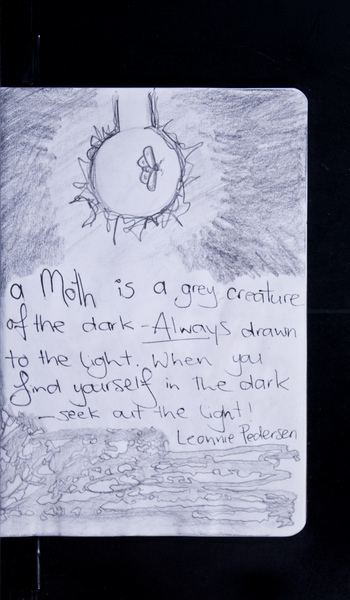 a Moth is a grey creature
of the dark - Always drawn
to the light. When you
find yourself in the dark
- seek out the light!
Leonnie Pedersen